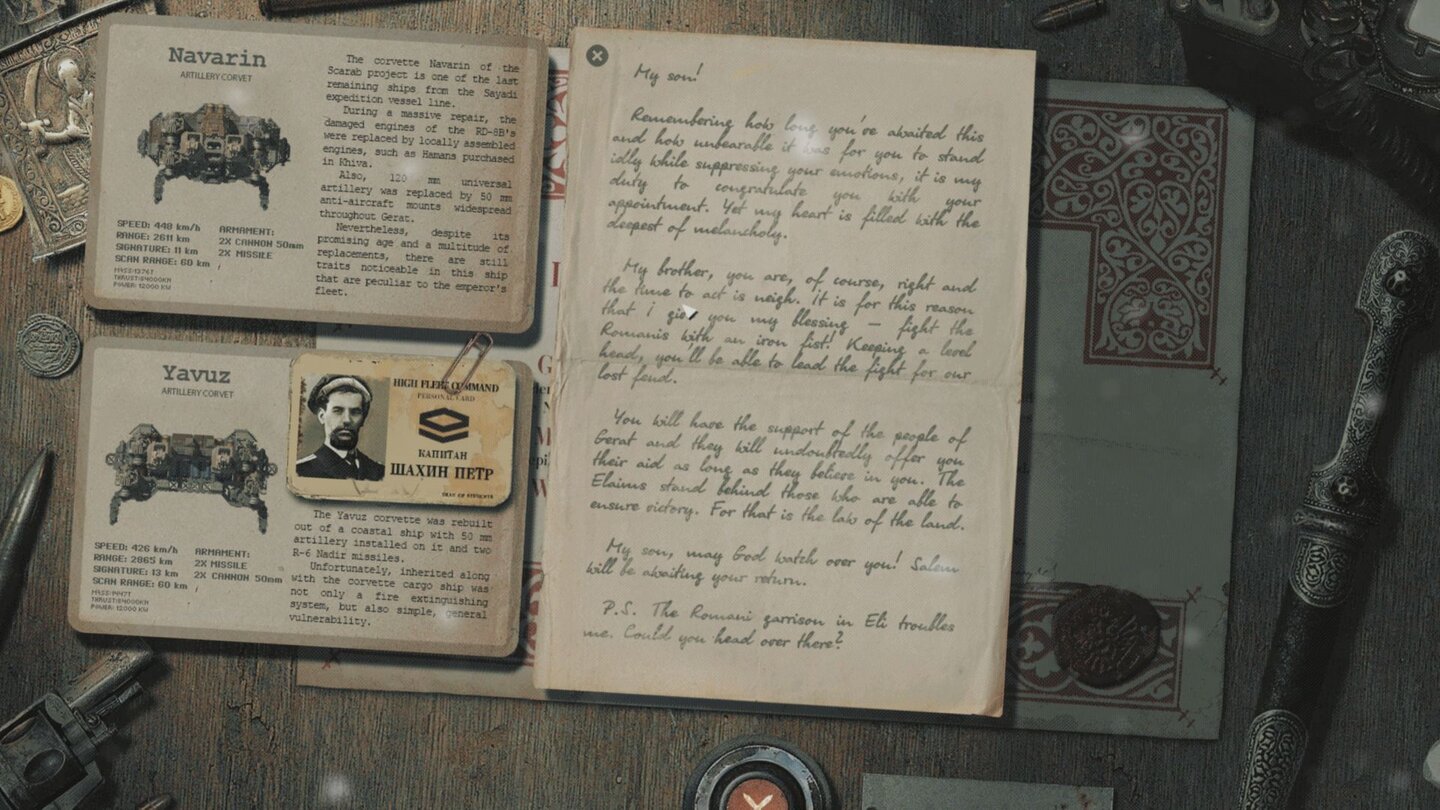 Navarin
ARTILLERY CORVET
SPEED: 448 km/h
RANGE: 2611 km
SIGNATURE: 11 km
SCAN RANGE: 60 km
ARMAMENT:
2X CANNON 50mm
2X MISSILE
POWER: 12000 KW
The corvette Navarin of the
Scarab project is one of the last
remaining ships from the Sayadi
expedition vessel line.
During a massive repair, the
damaged engines of the RD-8B's
were replaced by locally assembled
engines, such as Hamans purchased
in Khiva.
Also, 120 mm universal
artillery was replaced by 50 mm
anti-aircraft mounts widespread
throughout Gerat.
Nevertheless, despite its
promising age and a multitude of
replacements, there are still
traits noticeable in this ship
that are peculiar to the emperor's
fleet.
Yavuz
ARTILLERY CORVET
SPEED: 426 km/h
RANGE: 2865 km
SIGNATURE: 13 km
SCAN RANGE: 60 km
ARMAMENT:
2X MISSILE
2X CANNON 50mm
POWER: 12000 KW
HIGH FLEET COMMAND
PERSONAL CARD
КАПИТАН
ШАХИН ПЕТР
The Yavuz corvette was rebuilt
out of a coastal ship with 50 mm
artillery installed on it and two
R-6 Nadir missiles.
Unfortunately, inherited along
with the corvette cargo ship was
not only a fire extinguishing
system, but also simple, general
vulnerability.
My son!
Remembering how long you've awaited this
and how unbearable it was for you to stand
idly while suppressing your emotions, it is my
duty to congratulate you with your
appointment. Yet my heart is filled with the
deepest of melancholy.
My brother, you are, of course, right and
the time to act is neigh. It is for this reason
that I give you my blessing – fight the
Romanis with an iron fist! Keeping a level
head, you'll be able to lead the fight for our
lost feud.
You will have the support of the people of
Gerat and they will undoubtedly offer you
their aid as long as they believe in you. The
Elaims stand behind those who are able to
ensure victory. For that is the law of the land.
My son, may God watch over you! Salem
will be awaiting your return.
P.S. The Romani garrison in Eli troubles
me. Could you head over there?